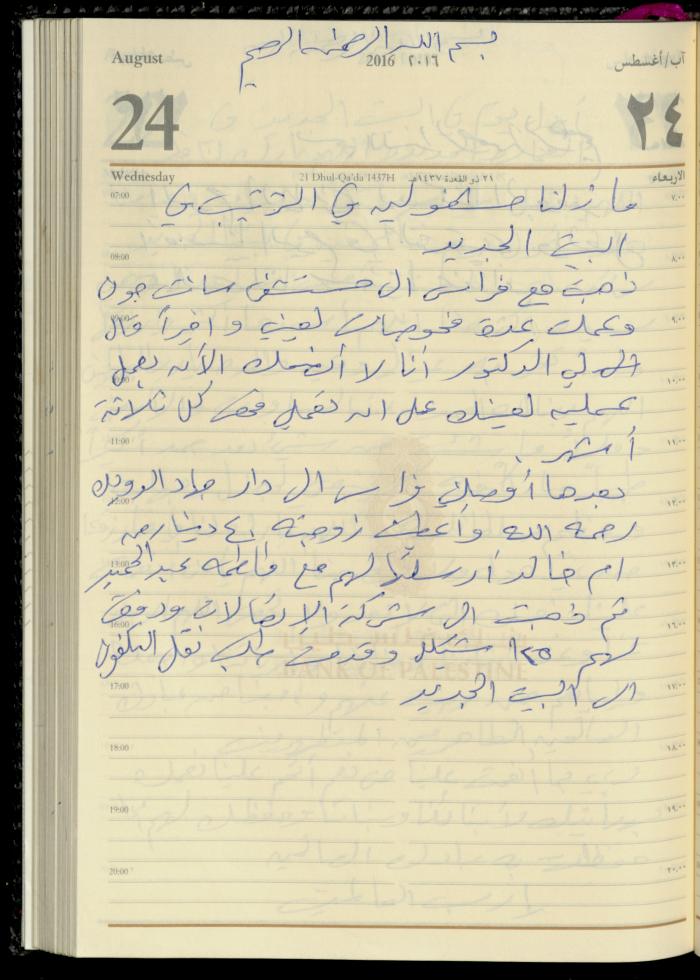 بسم الله الرحمن الرحيم
August 2016 ٢٠١٦ آب/أغسطس
24 ٢٤
Wednesday 21 Dhul-Qa'da 1437H ٢١ ذو القعدة ١٤٣٧هـ الأربعاء
07:00 ما زلنا مشغولين في الترتيب في ٧:٠٠
البيت الجديد
08:00 ٨:٠٠
ذهبت مع فراس الى مستشفى سانت جون
وعملت عدة فحوصات لعيني واخيراً قال ٩:٠٠
لي الدكتور أنا لا أنصحك الآن بعمل
١٠:٠٠
عملية لعينك على ان تعمل فحص كل ثلاثة
11:00 أشهر. ١١:٠٠
بعدها أوصلني فراس الى دار جهاد
12:00 ١٢:٠٠
رحمه الله وأعطيت زوجته ٤٠ دينار من
13:00 ام خالد أرسلتها لهم مع فاطمة عبد الحميد ١٣:٠٠
ثم ذهبت الى شركة الاتصالات ودفعت
16:00 ١٦:٠٠
لهم ١٢٥ شيكل وقدمت طلب نقل التلفون
BANK OF PALESTINE
17:00 الى البيت الجديد ١٧:٠٠
18:00 ١٨:٠٠
19:00 ١٩:٠٠
20:00 ٢٠:٠٠